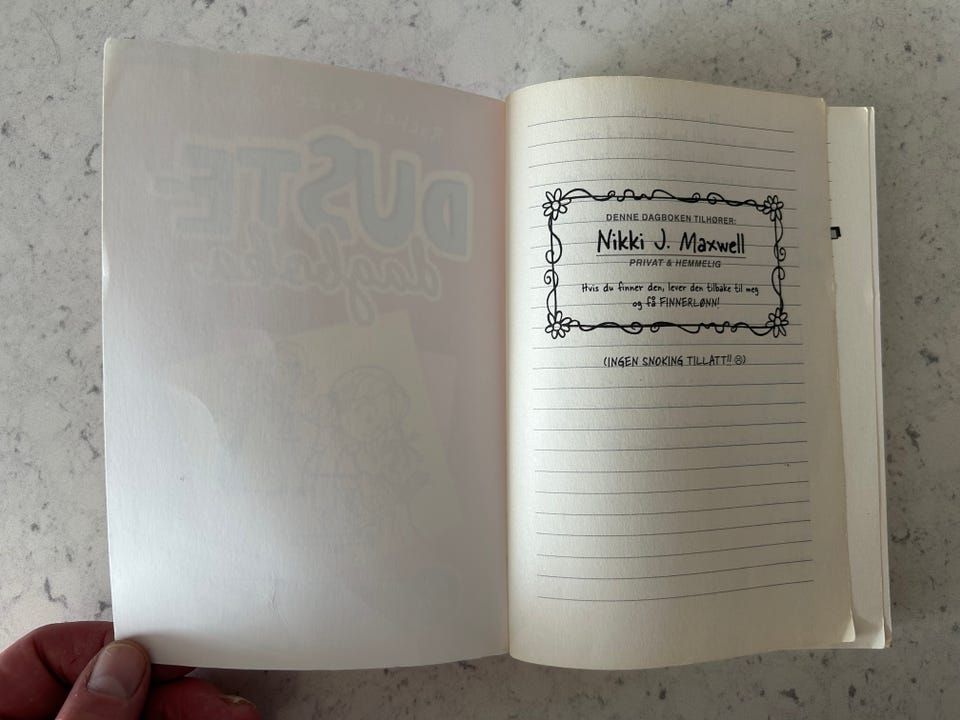 DUSTE-
DENNE DAGBOKEN TILHØRER:
Nikki J. Maxwell
PRIVAT & HEMMELIG
Hvis du finner den, lever den tilbake til meg
og få FINNERLØNN!
(INGEN SNOKING TILLATT!! ☹)